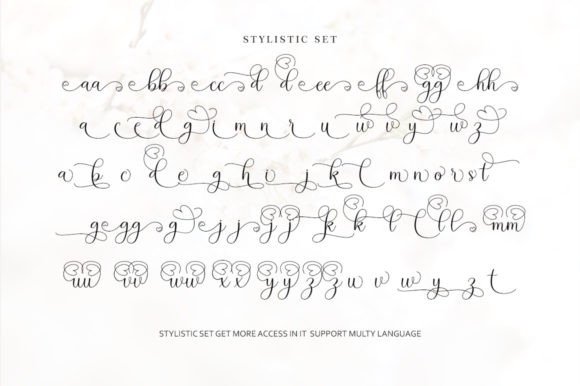 STYLISTIC SET
eaa ebb ecc d d eee eff gg ehh
a c e d g i m n r u w v y w z
a b c d e g h i j k l m n o r s t
g egg g e j j j j k k l l ll mm
uu vv ww xx yy zz u v w y z t
STYLISTIC SET GET MORE ACCESS IN IT SUPPORT MULTY LANGUAGE